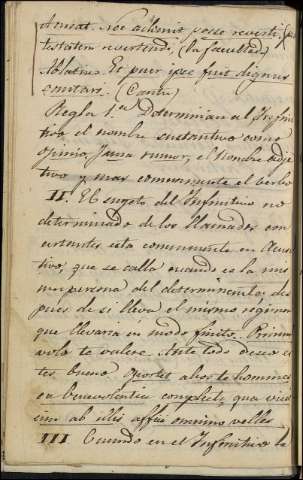 admat. Nec admonis posse reverti, (po
testatem revertendi, (la facultad)
Ablativo. Et puer ipse fuit dignus
cantari. (Cantu)
Regla 1.ª Determinan al Infini
tivo el nombre sustantivo como
opinio, fama rumor, el nombre adje
tivo y mas comunmente el verbo
II. El sugeto del Infinitivo no
determinado de los llamados con
certantes esta comunmente en Acusa
tivo, que se calla cuando es la mis
ma persona del determinante; des
pues de si lleva el mismo regimen
que llevaria en modo finito.
volo te valere. Ante todo deseo es
tes bueno. Oportet alios te homines
ea benevolentia complecti, qua
ab illis affici omnino velles
III Cuando en el Infinitivo la